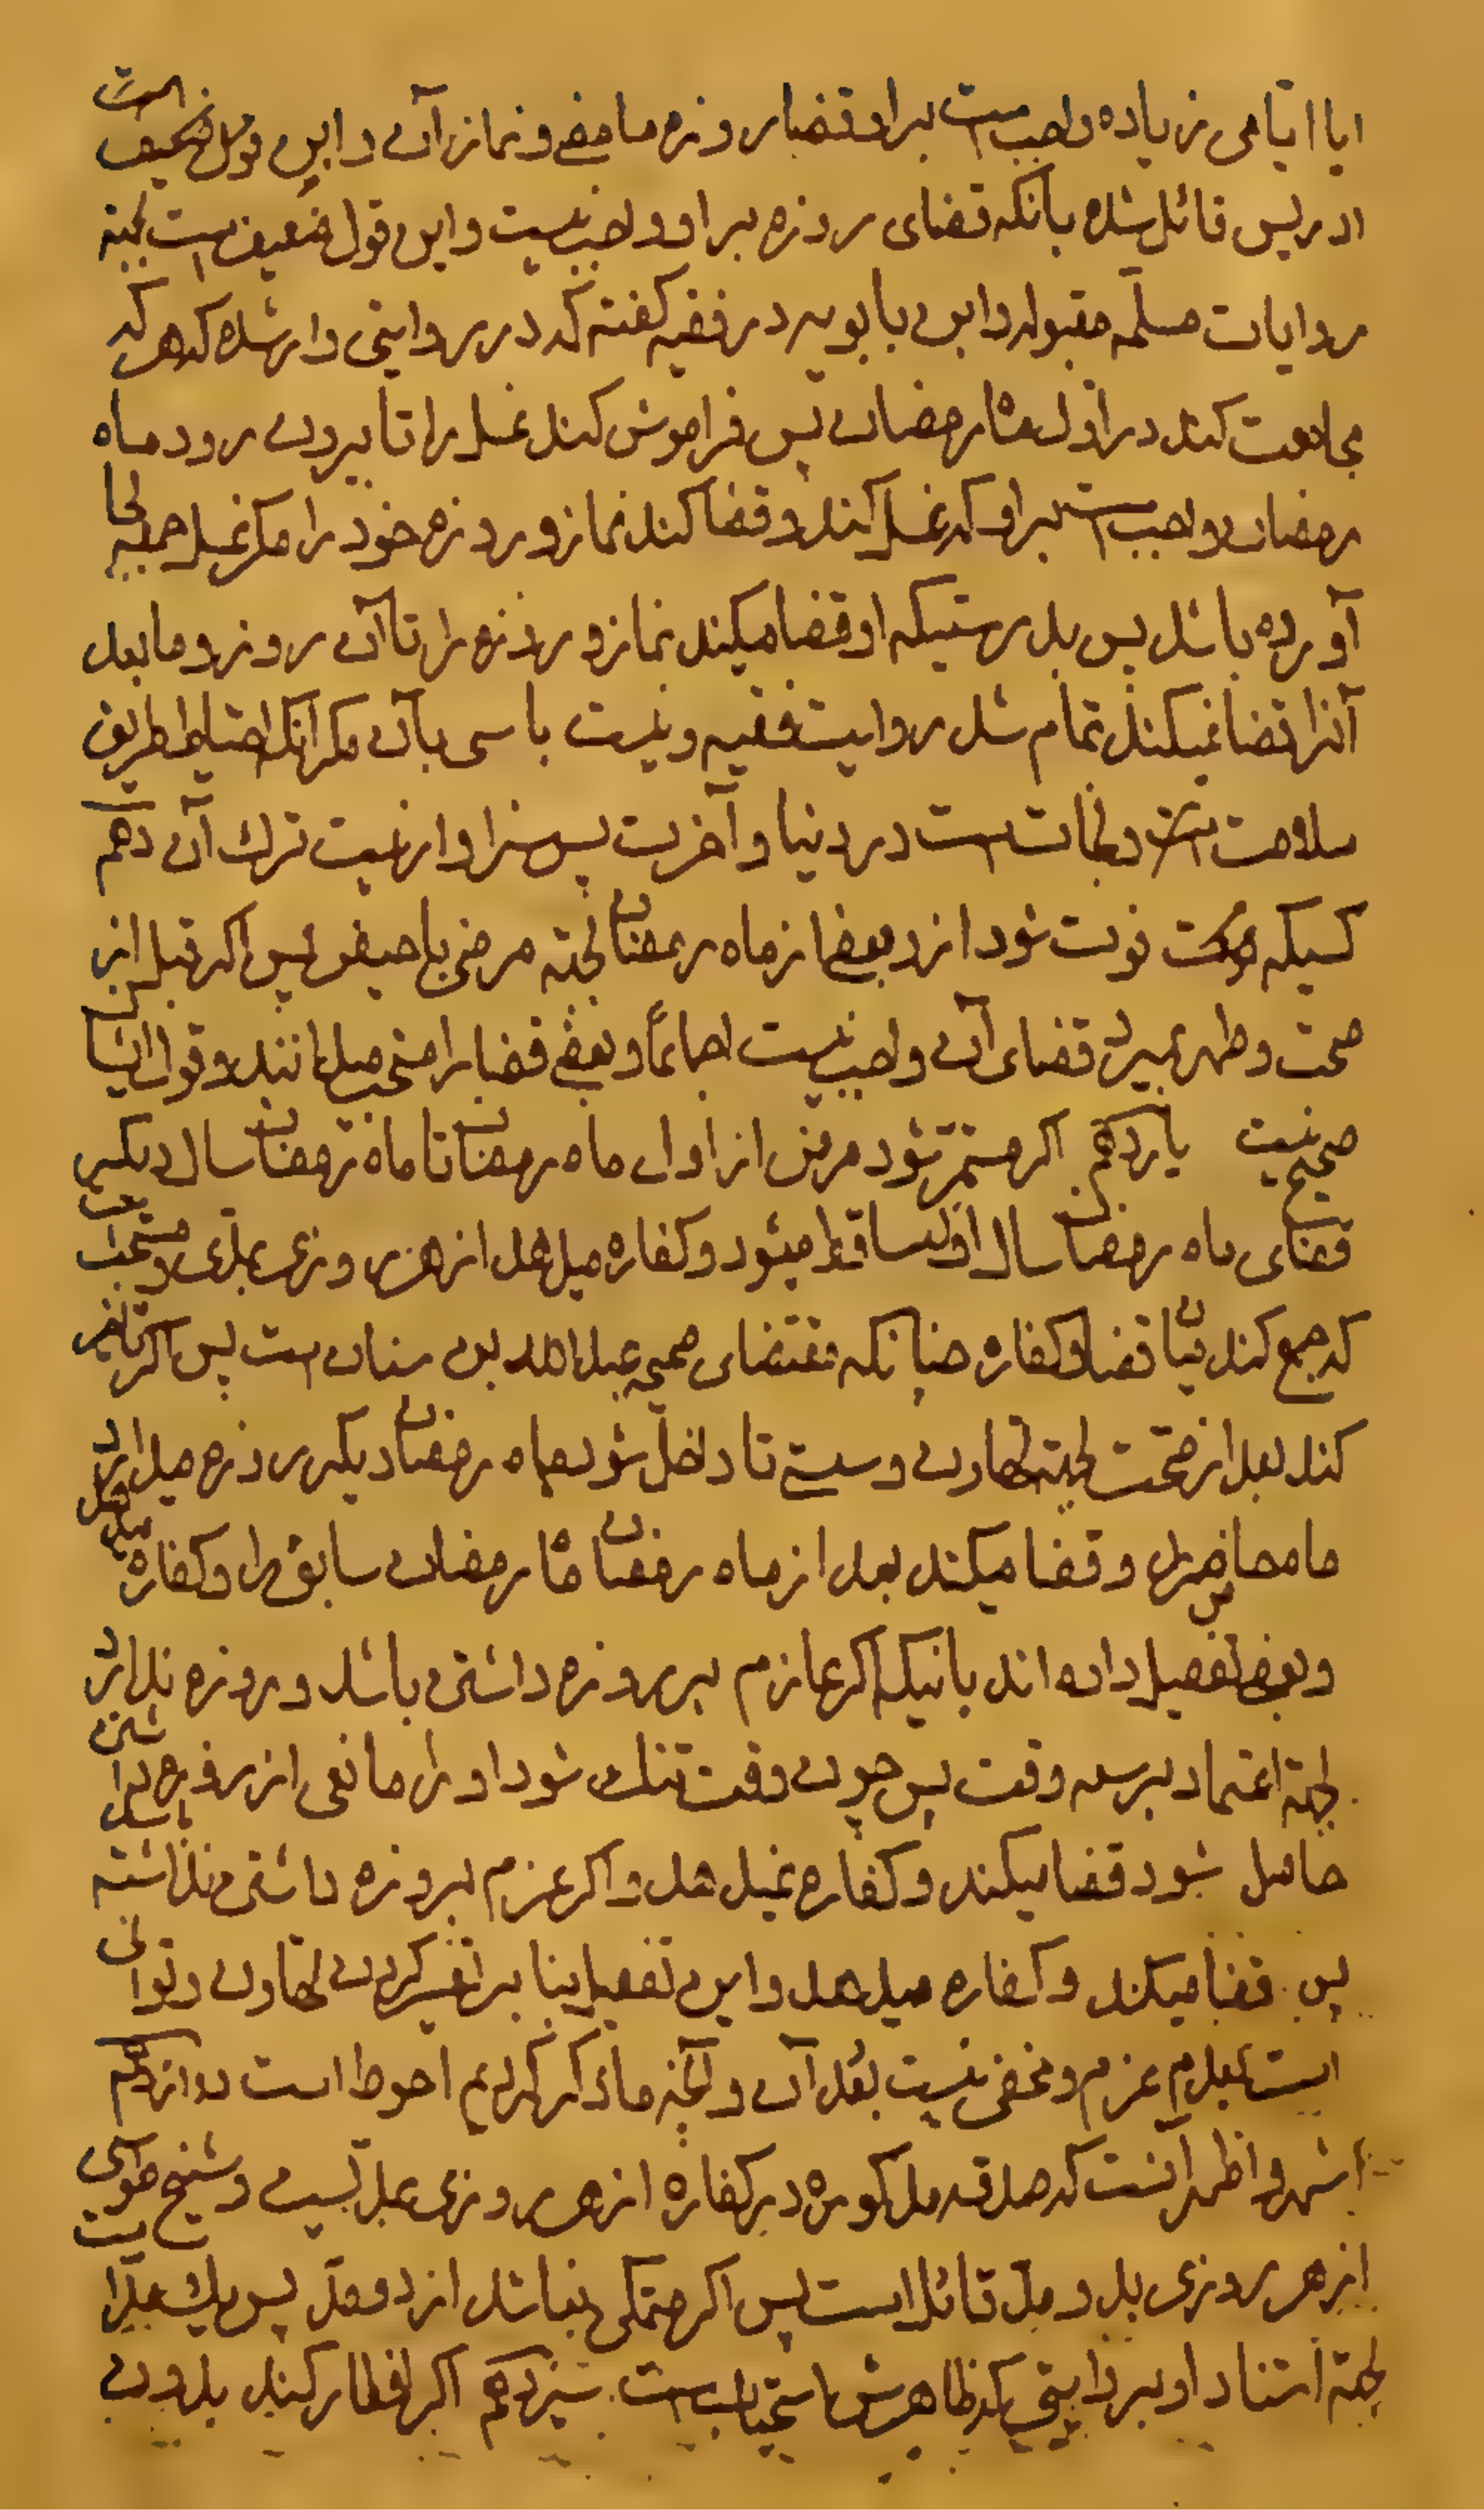 ایا ایامی زیاده واجب است بر او قضای روزه مامضی و نماز آن و این قول ضعیف است
ادریس قائل شده بآنکه قضای روزه بر او واجب نیست و این قول ضعیف است بجهة
روایات مسلّمه مقبوله و ابن بابویه در فقیه کفته که در روایتی وارشده که هر که
مجامعت کند در اوّل ماه رمضان پس فراموش کند غسل را تا بیرون رود ماه
رمضان واجب است بر او که غسل کند و قضا کند نماز و روزه خود را مکر غسل جمعه بجا
آورده باشد پس بدرستیکه او قضا میکند نماز و روزه را تا آن روز و ما بعد
آنرا قضا نمیکند تمام شد روایت فقیه و نیست باسی بآن مکر آنکه احتیاط طریق
سلامت است و نجات است در دنیا و آخرت پس سزاوار نیست ترک آن دهم
کسیکه فوت شود از او بعضی از ماه رمضان بجهة مرض یا حیض پس اکر قبل از
صحت و طهر بمیرد قضای آن واجب نیست اجماعاً و بعضی قضا را مستحب میدانند و قول ایشان
صحیح نیست یازدهم اکر مستمر شود مرض از اول ماه رمضان تا ماه رمضان سال دیکر
قضای ماه رمضان سال اول ساقط میشود و کفاره میدهد از هر روزی بمدّی و مستحب است
که جمع کند میان قضا و کفاره چنانکه مقتضای صحیحه عبد الله بن سنان است پس اکر تاخیر
کند بعد از صحّت بجهة تهاون و سستی تا داخل شود ماه رمضان دیکر روزه میدارد
ما حاضر را و قضا میکند بعد از ماه رمضان ماه رمضان سابق را و کفاره میدهد
و بعضی تفصیل داده اند باینکه اکر عازم بر روزه داشتن باشد و روزه ندارد
بجهة اعتماد بر سعه وقت پس چون وقت تنک شود او را مانعی از روزه داشتن
حاصل شود قضا میکند و کفاره نمیدهد و اکر عزم بروزه داشتن نداشته باشد
پس قضا میکند و کفاره میدهد و این تفصیل بنا بر تفسیر کردن تهاون و توانی
است بعدم عزم و مخفی نیست بعد آن و آنچه ما ذکر کردیم احوط است دوازدهم
اشهر و اظهر آنست که صدقه مذکوره در کفاره از هر روزی بمد است و شیخ طوسی
از هر روزی بدو مدّ قائل است پس اکر متمکن نباشد از دو مدّ پس یک مدّ را
بجهة استناد او بر روایتی که ظاهرش استحباب است سیزدهم اکر افطار کند بدون